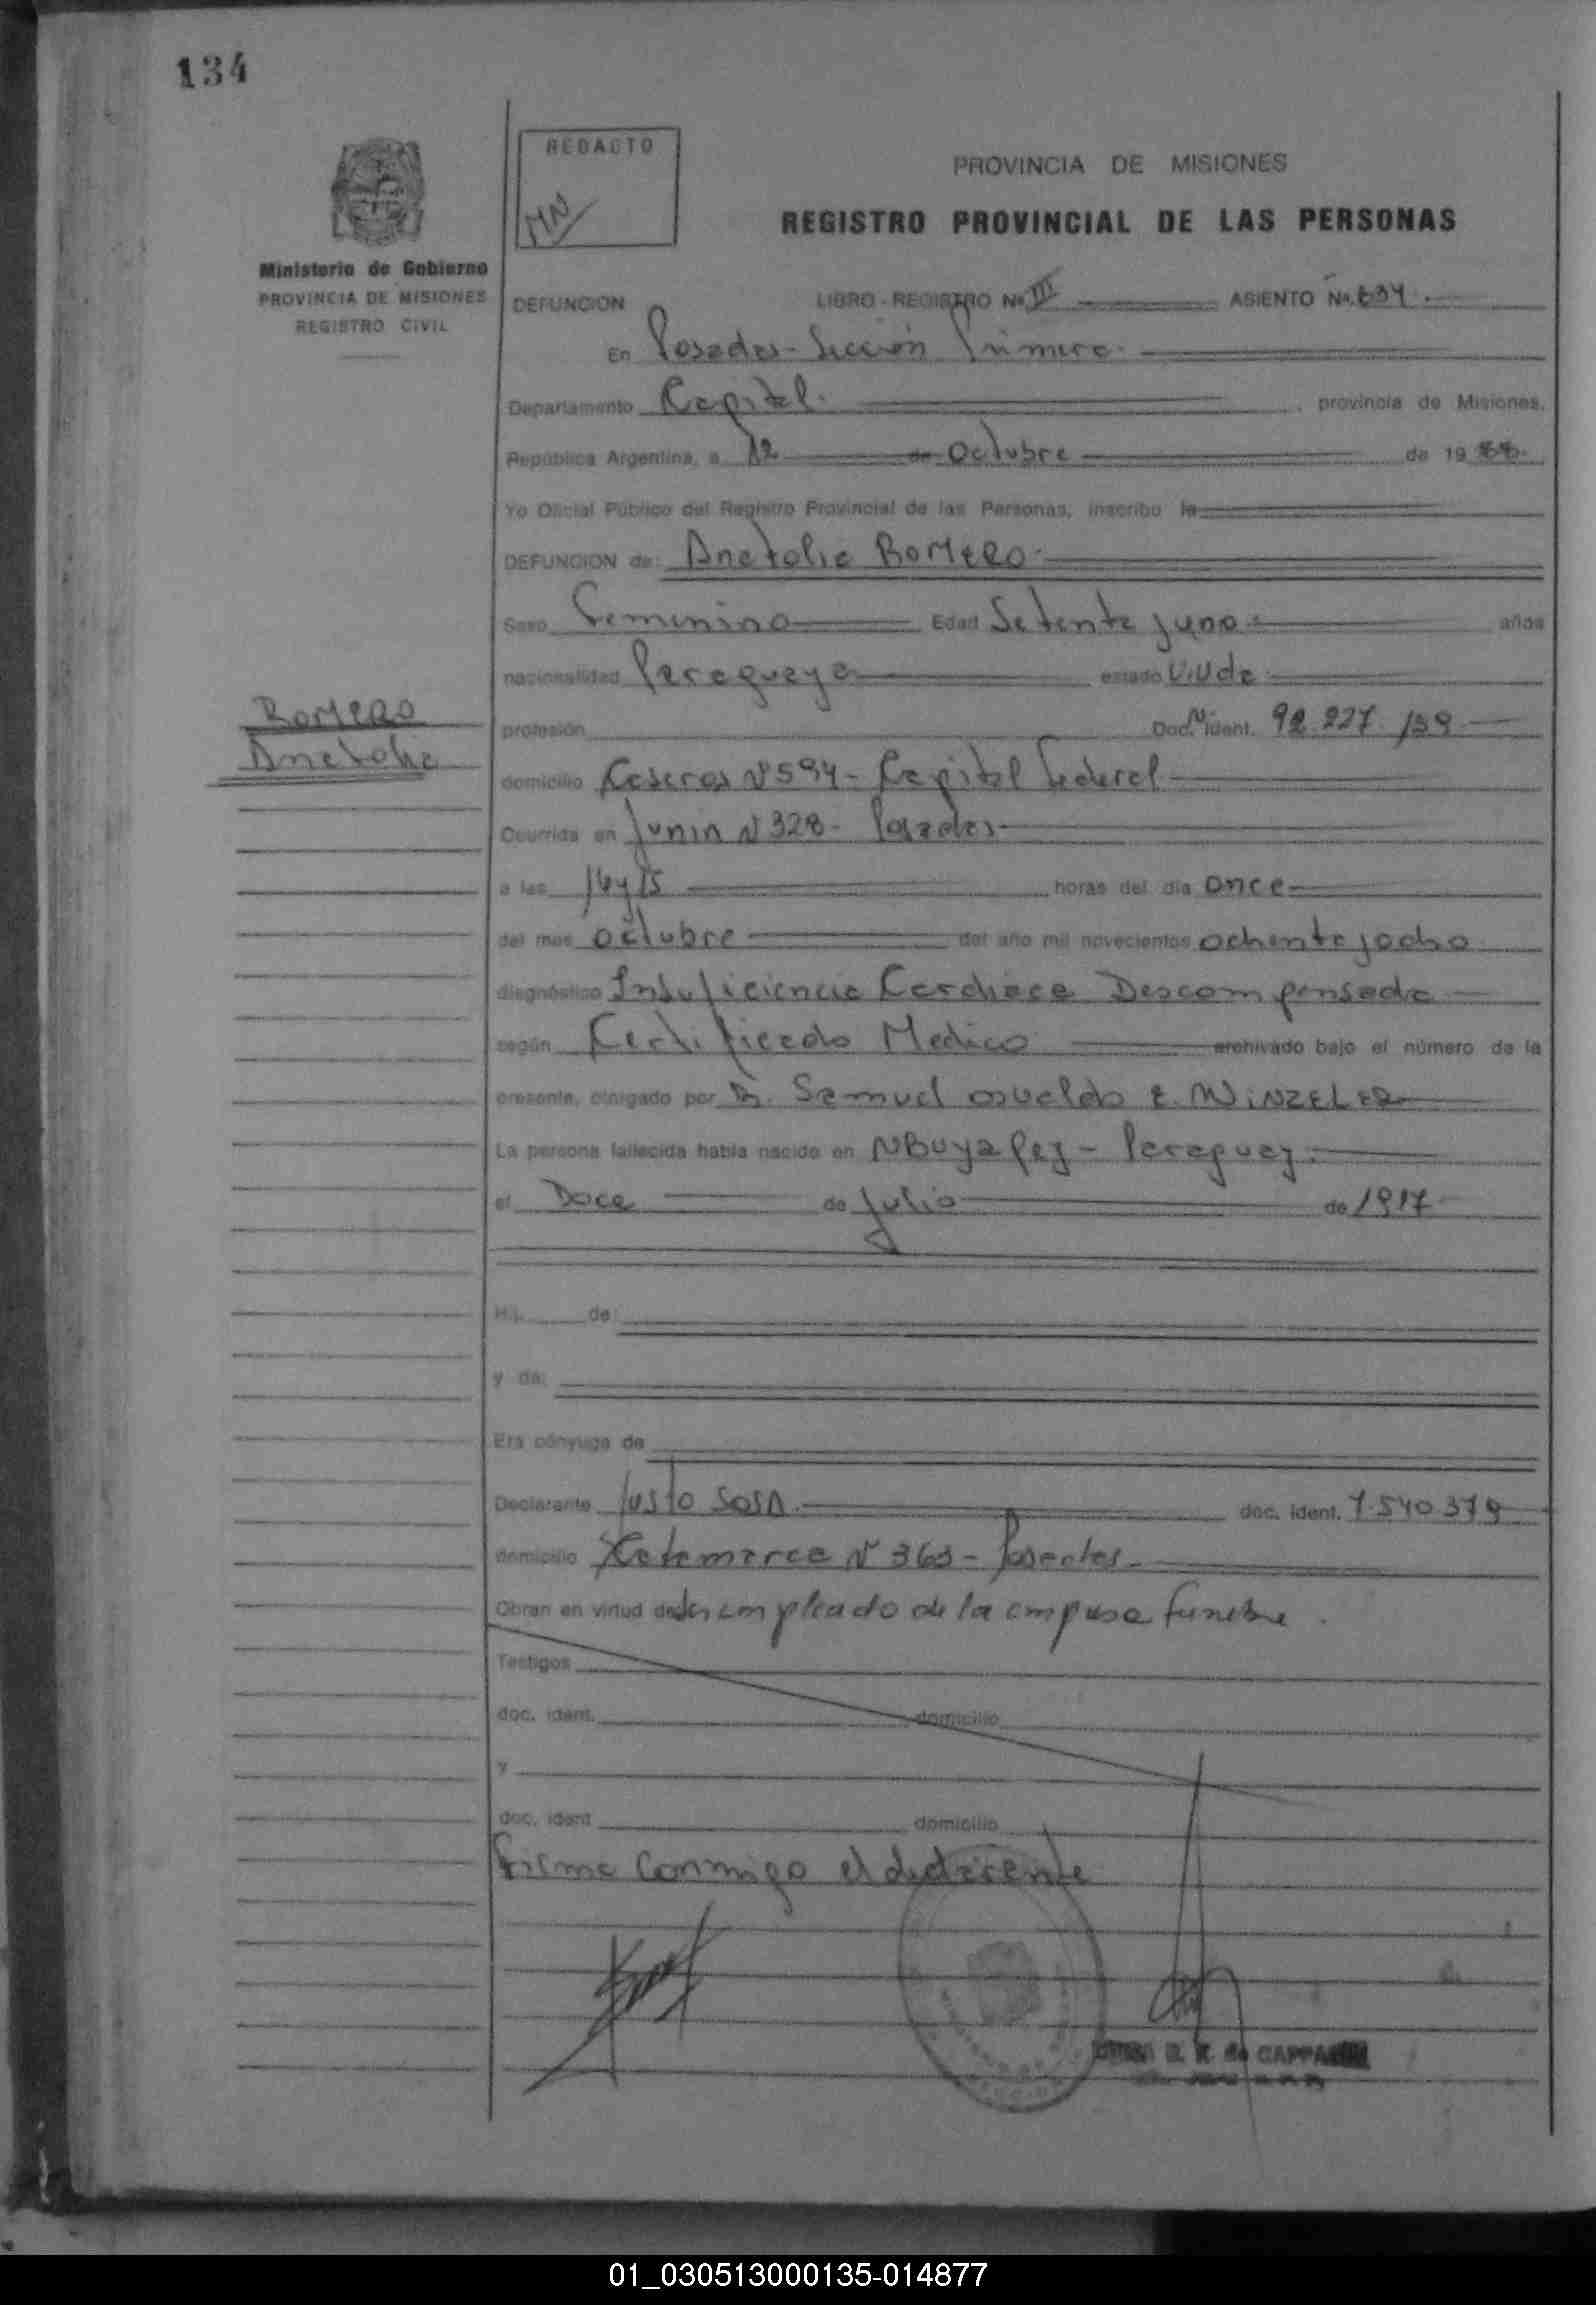 134
REDACTO
PROVINCIA DE MISIONES
REGISTRO PROVINCIAL DE LAS PERSONAS
Ministerio de Gobierno
PROVINCIA DE MISIONES
REGISTRO CIVIL
DEFUNCION LIBRO - REGISTRO Nº III ASIENTO Nº. 634.
En Posadas - Sección Primera.
Departamento Capital. , provincia de Misiones,
República Argentina, a 12 de Octubre de 1988.
Yo Oficial Público del Registro Provincial de las Personas, inscribo la
DEFUNCION de: Anatolia Romero.
Sexo Femenino Edad Setenta y uno. años
nacionalidad Paraguaya estado Viuda
Romero
Anatolia
profesión Doc. Nº ident. 92.227.139
domicilio Caseros Nº 594 - Capital Federal
Ocurrida en Junin Nº 328 - Posadas
a las 16 y 15 horas del día once
del mes octubre del año mil novecientos ochenta y ocho
diagnóstico Insuficiencia Cardiaca Descompensada
según Certificado Medico archivado bajo el número de la
presente, otorgado por Dr. Samuel Osvaldo E. WiNZELER
La persona fallecida había nacido en Nbuyapey - Paraguay.
el Doce de Julio de 1917
Hij de:
y de:
Era cónyuge de
Declarante Justo SOSA. doc. ident. 7.540.379
domicilio Catamarca Nº 363 - Posadas.
Obran en virtud de ser empleado de la empresa funebre.
Testigos
doc. ident. domicilio
y
doc. ident domicilio
Firma conmigo el declarante
R. de
01_030513000135-014877